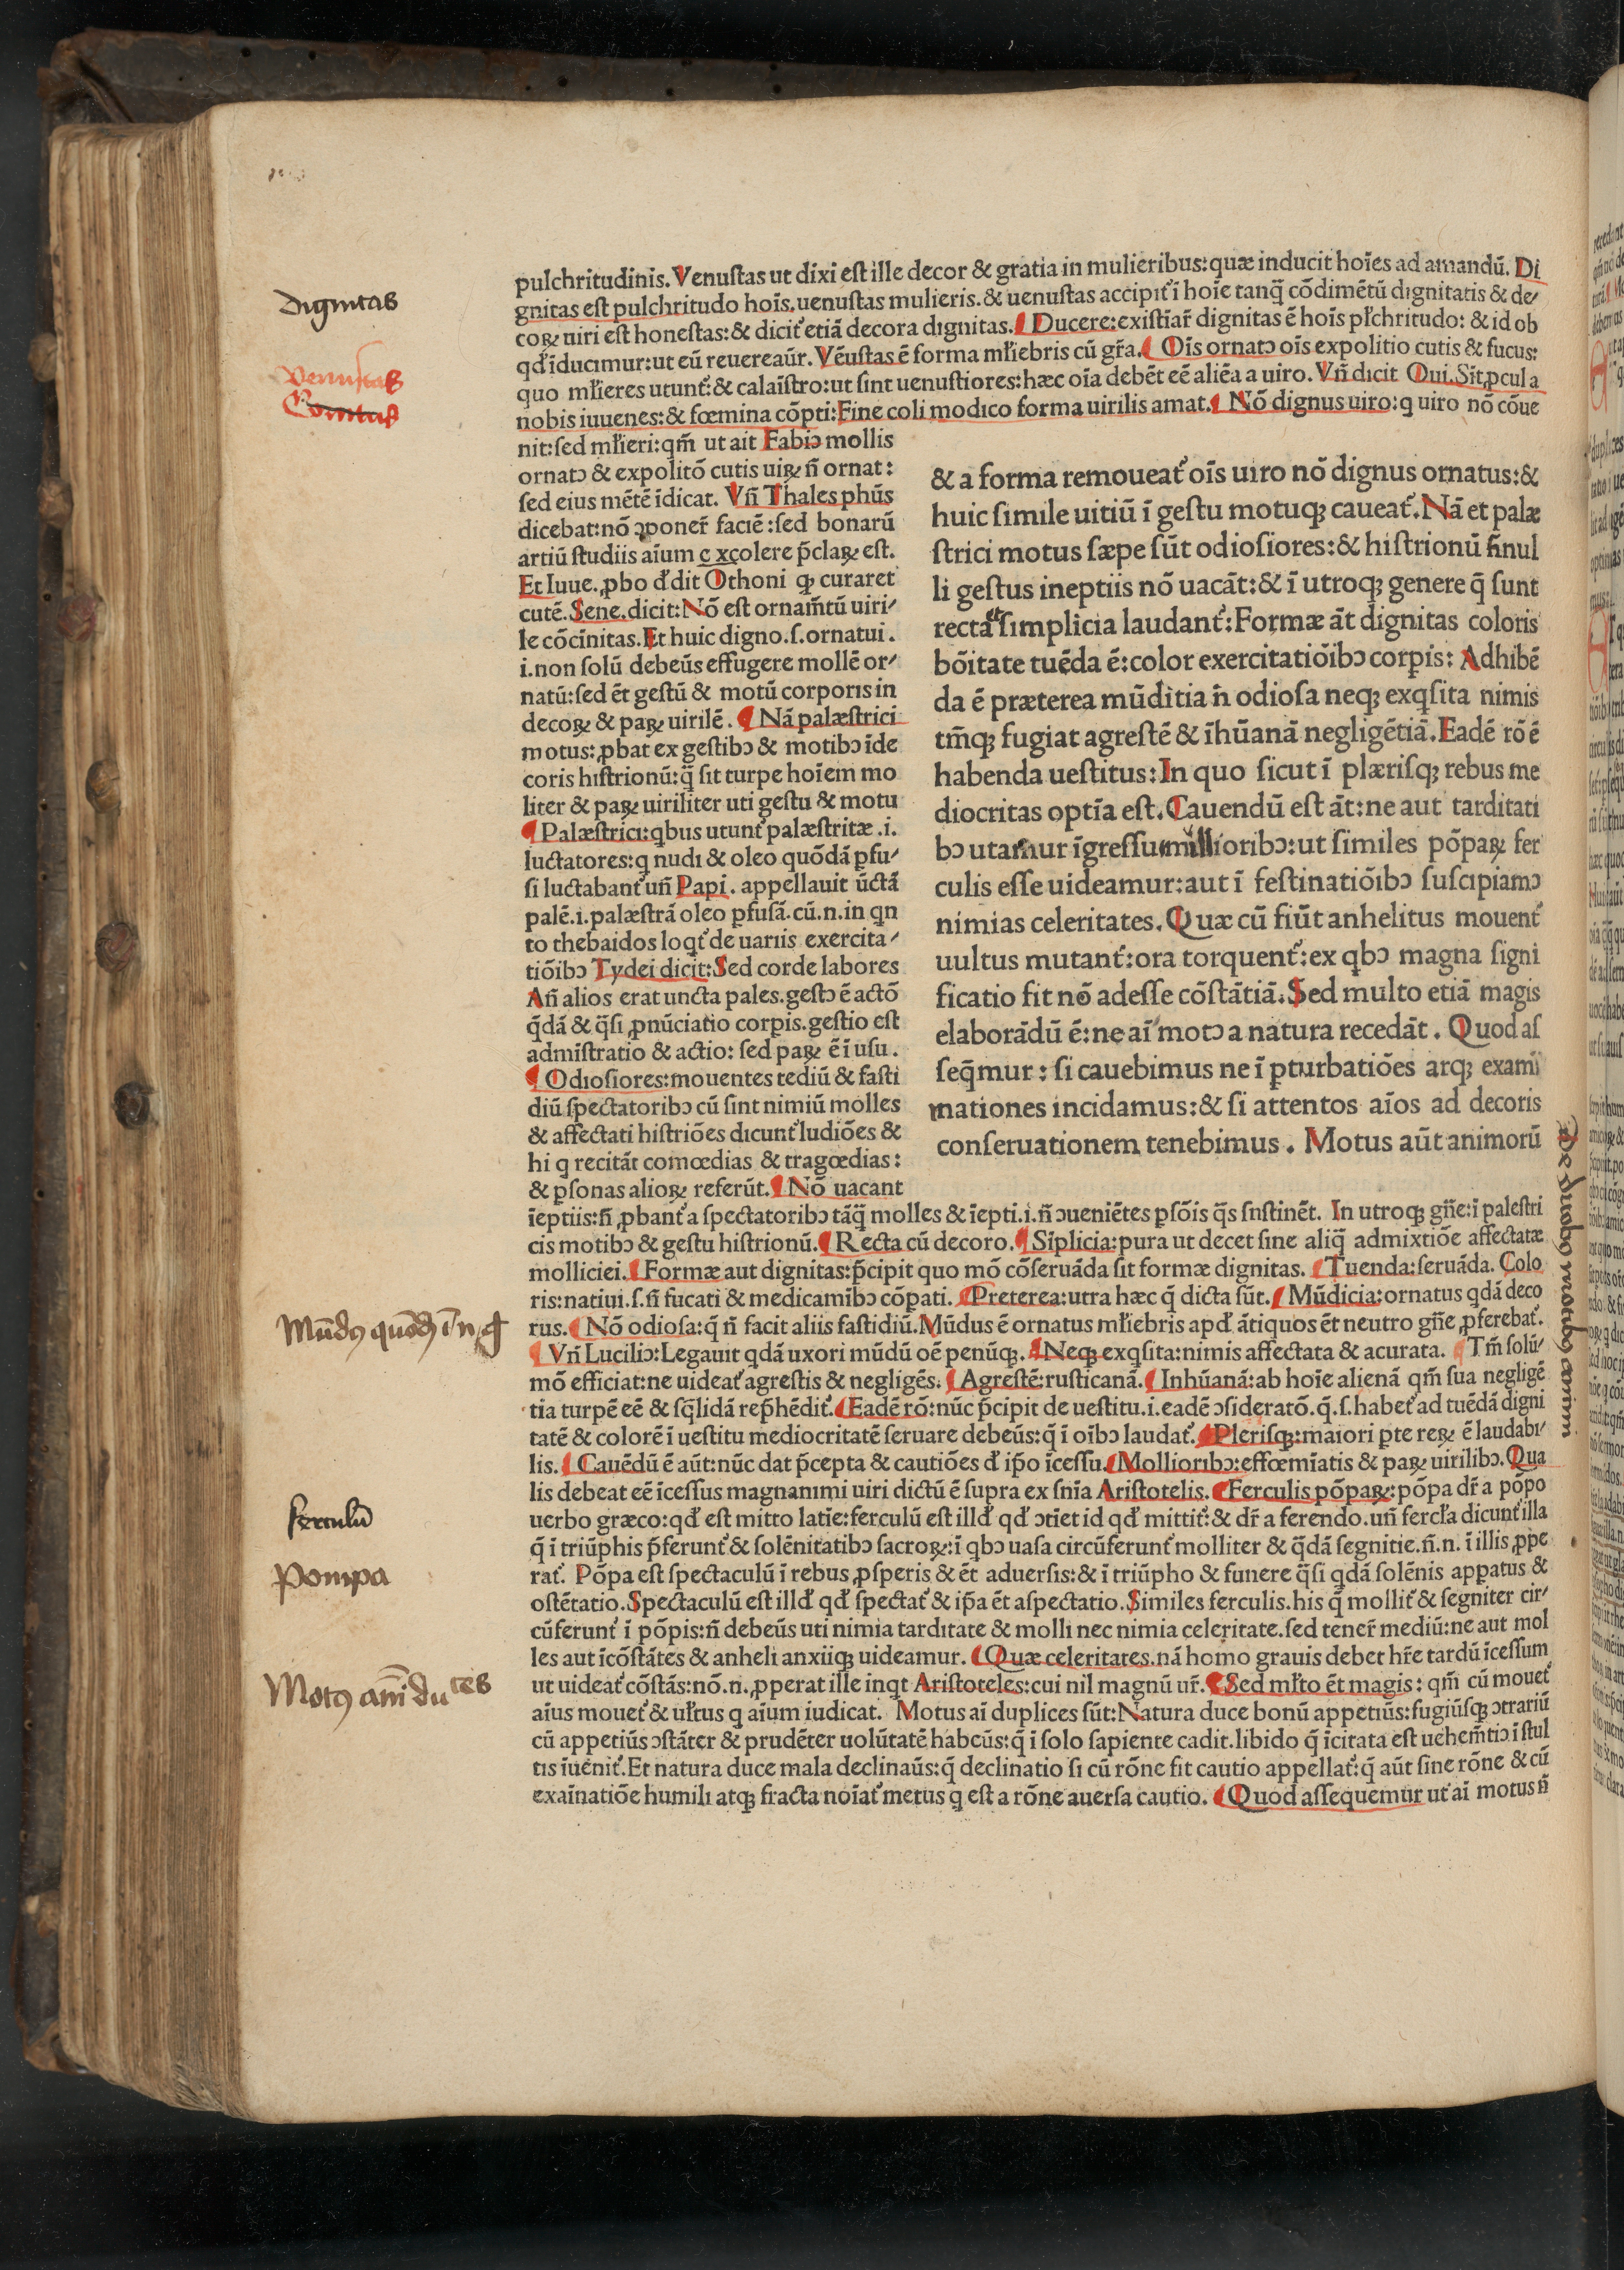 pulchritudinis. Venuſtas ut dixi eſt ille decor & gratia in mulieribus: quæ inducit hoīes ad amandū. Di
gnitas eſt pulchritudo hoīs. uenuſtas mulieris. & uenuſtas accipit᷑ ī hoīe tanq̄ cōdimētū dignitatis & de⸗
coꝝ uiri eſt honeſtas: & dicit᷑ etiā decora dignitas. ¶ Ducere: exiſtīar̄ dignitas ē hoīs pl̄chritudo: & id ob
qđ īducımur: ut eū reuereaūr. Vēuſtas ē forma ml̄iebris cū gr̄a. ¶ Oīs ornatꝯ oīs expolitio cutis & fucus:
quo ml̄ieres utunt᷑: & calaīſtro: ut ſint uenuſtiores: hæc oīa debēt eē aliēa a uiro. Vn̄ dicit Oui. Sīt ꝓcul a
nobis iuuenes: & fœmina cōpti: Fine coli modico forma uirilis amat. ¶ Nō dignus uiro: q uiro nō cōue
nit: ſed ml̄ieri: qm̄ ut ait Fabiꝯ mollis
ornatꝯ & expolitō cutis uiꝝ n̄ ornat:
ſed eius mētē īdicat. Vn̄ Thales phūs
dicebat: nō ꝯponer̄ faciē: ſed bonarū
artiū ſtudiis aīum excolere p̄claꝝ eſt.
Et Iuue. ꝓbo đdit Othoni ꝙ curaret
cutē. Sene. dicit: Nō eſt ornam̄tū uiri⸗
le cōcīnitas. Et huic digno. ſ. ornatui.
i. non ſolū debeūs effugere mollē or⸗
natū: ſed ēt geſtū & motū corporis in
decoꝝ & paꝝ uirilē. ¶ Nā palæſtrici
motus: ꝓbat ex geſtibꝯ & motibꝯ īde
coris hiſtrionū: q̄ ſit turpe hoīem mo
liter & paꝝ uiriliter uti geſtu & motu
¶ Palæſtrici: qbus utunt᷑ palæſtritæ. i.
luctatores: q nudi & oleo quōdā ꝑfu⸗
ſi luctabant᷑ un̄ Papi. appellauit ūctā
palē. i. palæſtrā oleo ꝑfuſā. cū. n. in qn
to thebaidos loqt᷑ de uariis exercita⸗
tiōibꝯ Tydei dicit: Sed corde labores
An̄ alios erat uncta pales. geſtꝯ ē actō
q̄dā & q̄ſi ꝓnūciatio corpis. geſtio eſt
admīſtratio & actio: ſed paꝝ ē ī uſu.
¶ Odioſiores: mouentes tediū & faſti
diū ſpectatoribꝯ cū ſint nimiū molles
& affectati hiſtriōes dicunt᷑ ludiōes &
hi q recitāt comœdias & tragœdias:
& ꝑſonas alioꝝ referūt. ¶ Nō uacant
& a forma remoueat᷑ oīs uiro nō dignus ornatus: &
huic ſimile uitiū ī geſtu motuqꝫ caueat᷑. Nā et palæ
ſtrici motus ſæpe ſūt odioſiores: & hiſtrionū n̄nul
li geſtus ineptiis nō uacāt: & ī utroqꝫ genere q̄ ſunt
recta et ſimplicia laudant᷑: Formæ āt dignitas coloris
bōitate tuēda ē: color exercitatiōibꝯ corpīs: Adhibē
da ē præterea mūditia n̄ odioſa neqꝫ exqſita nimis
tm̄qꝫ fugiat agreſtē & īhūanā negligētiā. Eadē rō ē
habenda ueſtitus: In quo ſicut ī plæriſqꝫ rebus me
diocritas optīa eſt. Cauendū eſt āt: ne aut tarditati
bꝯ utamur īgreſſu mollioribꝯ: ut ſimiles pōpaꝝ fer
culis eſſe uideamur: aut ī feſtinatiōibꝯ ſuſcipiamꝯ
nimias celeritates. Quæ cū fiūt anhelitus mouent᷑
uultus mutant᷑: ora torquent᷑: ex qbꝯ magna ſigni
ficatio fit nō adeſſe cōſtātiā. Sed multo etiā magis
elaborādū ē: ne aī motꝯ a natura recedāt. Quod aſ
ſeq̄mur: ſi cauebimus ne ī ꝑturbatiōes atqꝫ exami
nationes incidamus: & ſi attentos aīos ad decoris
conſeruationem tenebimus. Motus aūt animorū
īeptiis: n̄ ꝓbant᷑ a ſpectatoribꝯ tāq̄ molles & īepti. i. n̄ ꝯueniētes ꝑſōis q̄s ſnſtinēt. In utroqꝫ gn̄e: ī paleſtri
cis motibꝯ & geſtu hiſtrionū. ¶ Recta cū decoro. ¶ Sīplicia: pura ut decet ſine aliq̄ admixtiōe affectatæ
molliciei. ¶ Formæ aut dignitas: p̄cipit quo mō cōſeruāda ſit formæ dignitas. ¶ Tuenda: ſeruāda. Colo
ris: natiui. ſ. n̄ fucati & medicamībꝯ cōpati. ¶ Preterea: utra hæc q̄ dicta ſūt. ¶ Mūdicia: ornatus qdā deco
rus. ¶ Nō odioſa: q̄ n̄ facit aliis faſtidiū. Mūdus ē ornatus ml̄iebris apđ ātiquos ēt neutro gn̄e ꝓferebat᷑.
¶ Vn̄ Luciliꝯ: Legauit qdā uxori mūdū oē penūqꝫ. ¶ Neqꝫ exqſita: nimis affectata & acurata. ¶ Tm̄ ſolū⸗
mō efficiat: ne uideat᷑ agreſtis & negligēs. ¶ Agreſtē: ruſticanā. ¶ Inhūanā: ab hoīe alienā qm̄ ſua negligē
tia turpē eē & ſq̄lidā rep̄hēdit᷑. ¶ Eadē rō: nūc p̄cipit de ueſtitu. i. eadē ꝯſideratō. q̄. ſ. habet᷑ ad tuēdā digni
tatē & colorē ī ueſtitu mediocritatē ſeruare debeūs: q̄ ī oībꝯ laudat᷑. ¶ Pleriſqꝫ: maiori ꝑte reꝝ ē laudabi⸗
lis. ¶ Cauēdū ē aūt: nūc dat p̄cepta & cautiōes đ ip̄o īceſſu. ¶ Mollioribꝯ: effœmīatis & paꝝ uirilibꝯ. Qua
lis debeat eē īceſſus magnanimi uiri dictū ē ſupra ex ſnīa Ariſtotelis. ¶ Ferculis pōpaꝝ: pōpa dr̄ a pōpo
uerbo græco: qđ eſt mitto latīe: ferculū eſt illđ qđ ꝯtīet id qđ mittit᷑: & dr̄ a ferendo. un̄ fercl̄a dicunt᷑ illa
q̄ ī triūphis p̄ferunt᷑ & ſolēnitatibꝯ ſacroꝝ: ī qbꝯ uaſa circūferunt᷑ molliter & q̄dā ſegnitie. n̄. n. ī illis ꝓpe
rat᷑. Pōpa eſt ſpectaculū ī rebus ꝓſperis & ēt aduerſis: & ī triūpho & funere q̄ſi qdā ſolēnis apparatus &
oſtētatio. Spectaculū eſt illđ qđ ſpectat᷑ & ip̄a ēt aſpectatio. Similes ferculis. his q̄ mollit᷑ & ſegniter cir⸗
cūferunt᷑ ī pōpis: n̄ debeūs uti nimia tarditate & molli nec nimia celeritate. ſed tener̄ mediū: ne aut mol
les aut īcōſtātes & anheli anxiiqꝫ uideamur. ¶ Quæ celeritates. nā homo grauis debet hr̄e tardū īceſſum
ut uideat᷑ cōſtās: nō. n. ꝓperat ille inqt Ariſtoteles: cui nil magnū ur̄. ¶ Sed ml̄to ēt magis: qm̄ cū mouet᷑
aīus mouet᷑ & ul̄tus q aīum iudicat. Motus aī duplices ſūt: Natura duce bonū appetiūs: fugiūſqꝫ ꝯtrariū
cū appetiūs ꝯſtāter & prudēter uolūtatē habeūs: q̄ ī ſolo ſapiente cadit. libido q̄ īcitata eſt uehem̄tiꝯ ī ſtul
tis īuenit᷑. Et natura duce mala declinaūs: q̄ declinatio ſi cū rōne fit cautio appellat᷑: q̄ aūt ſine rōne & cū
exaīnatiōe humili atqꝫ fracta noīat᷑ metus q eſt a rōne auerſa cautio. ¶ Quod aſſequemur ut aī motus n̄
Dignitas
Venuſtas
Comitas
ferculū
Pompa
De duobꝯ motibꝯ animi